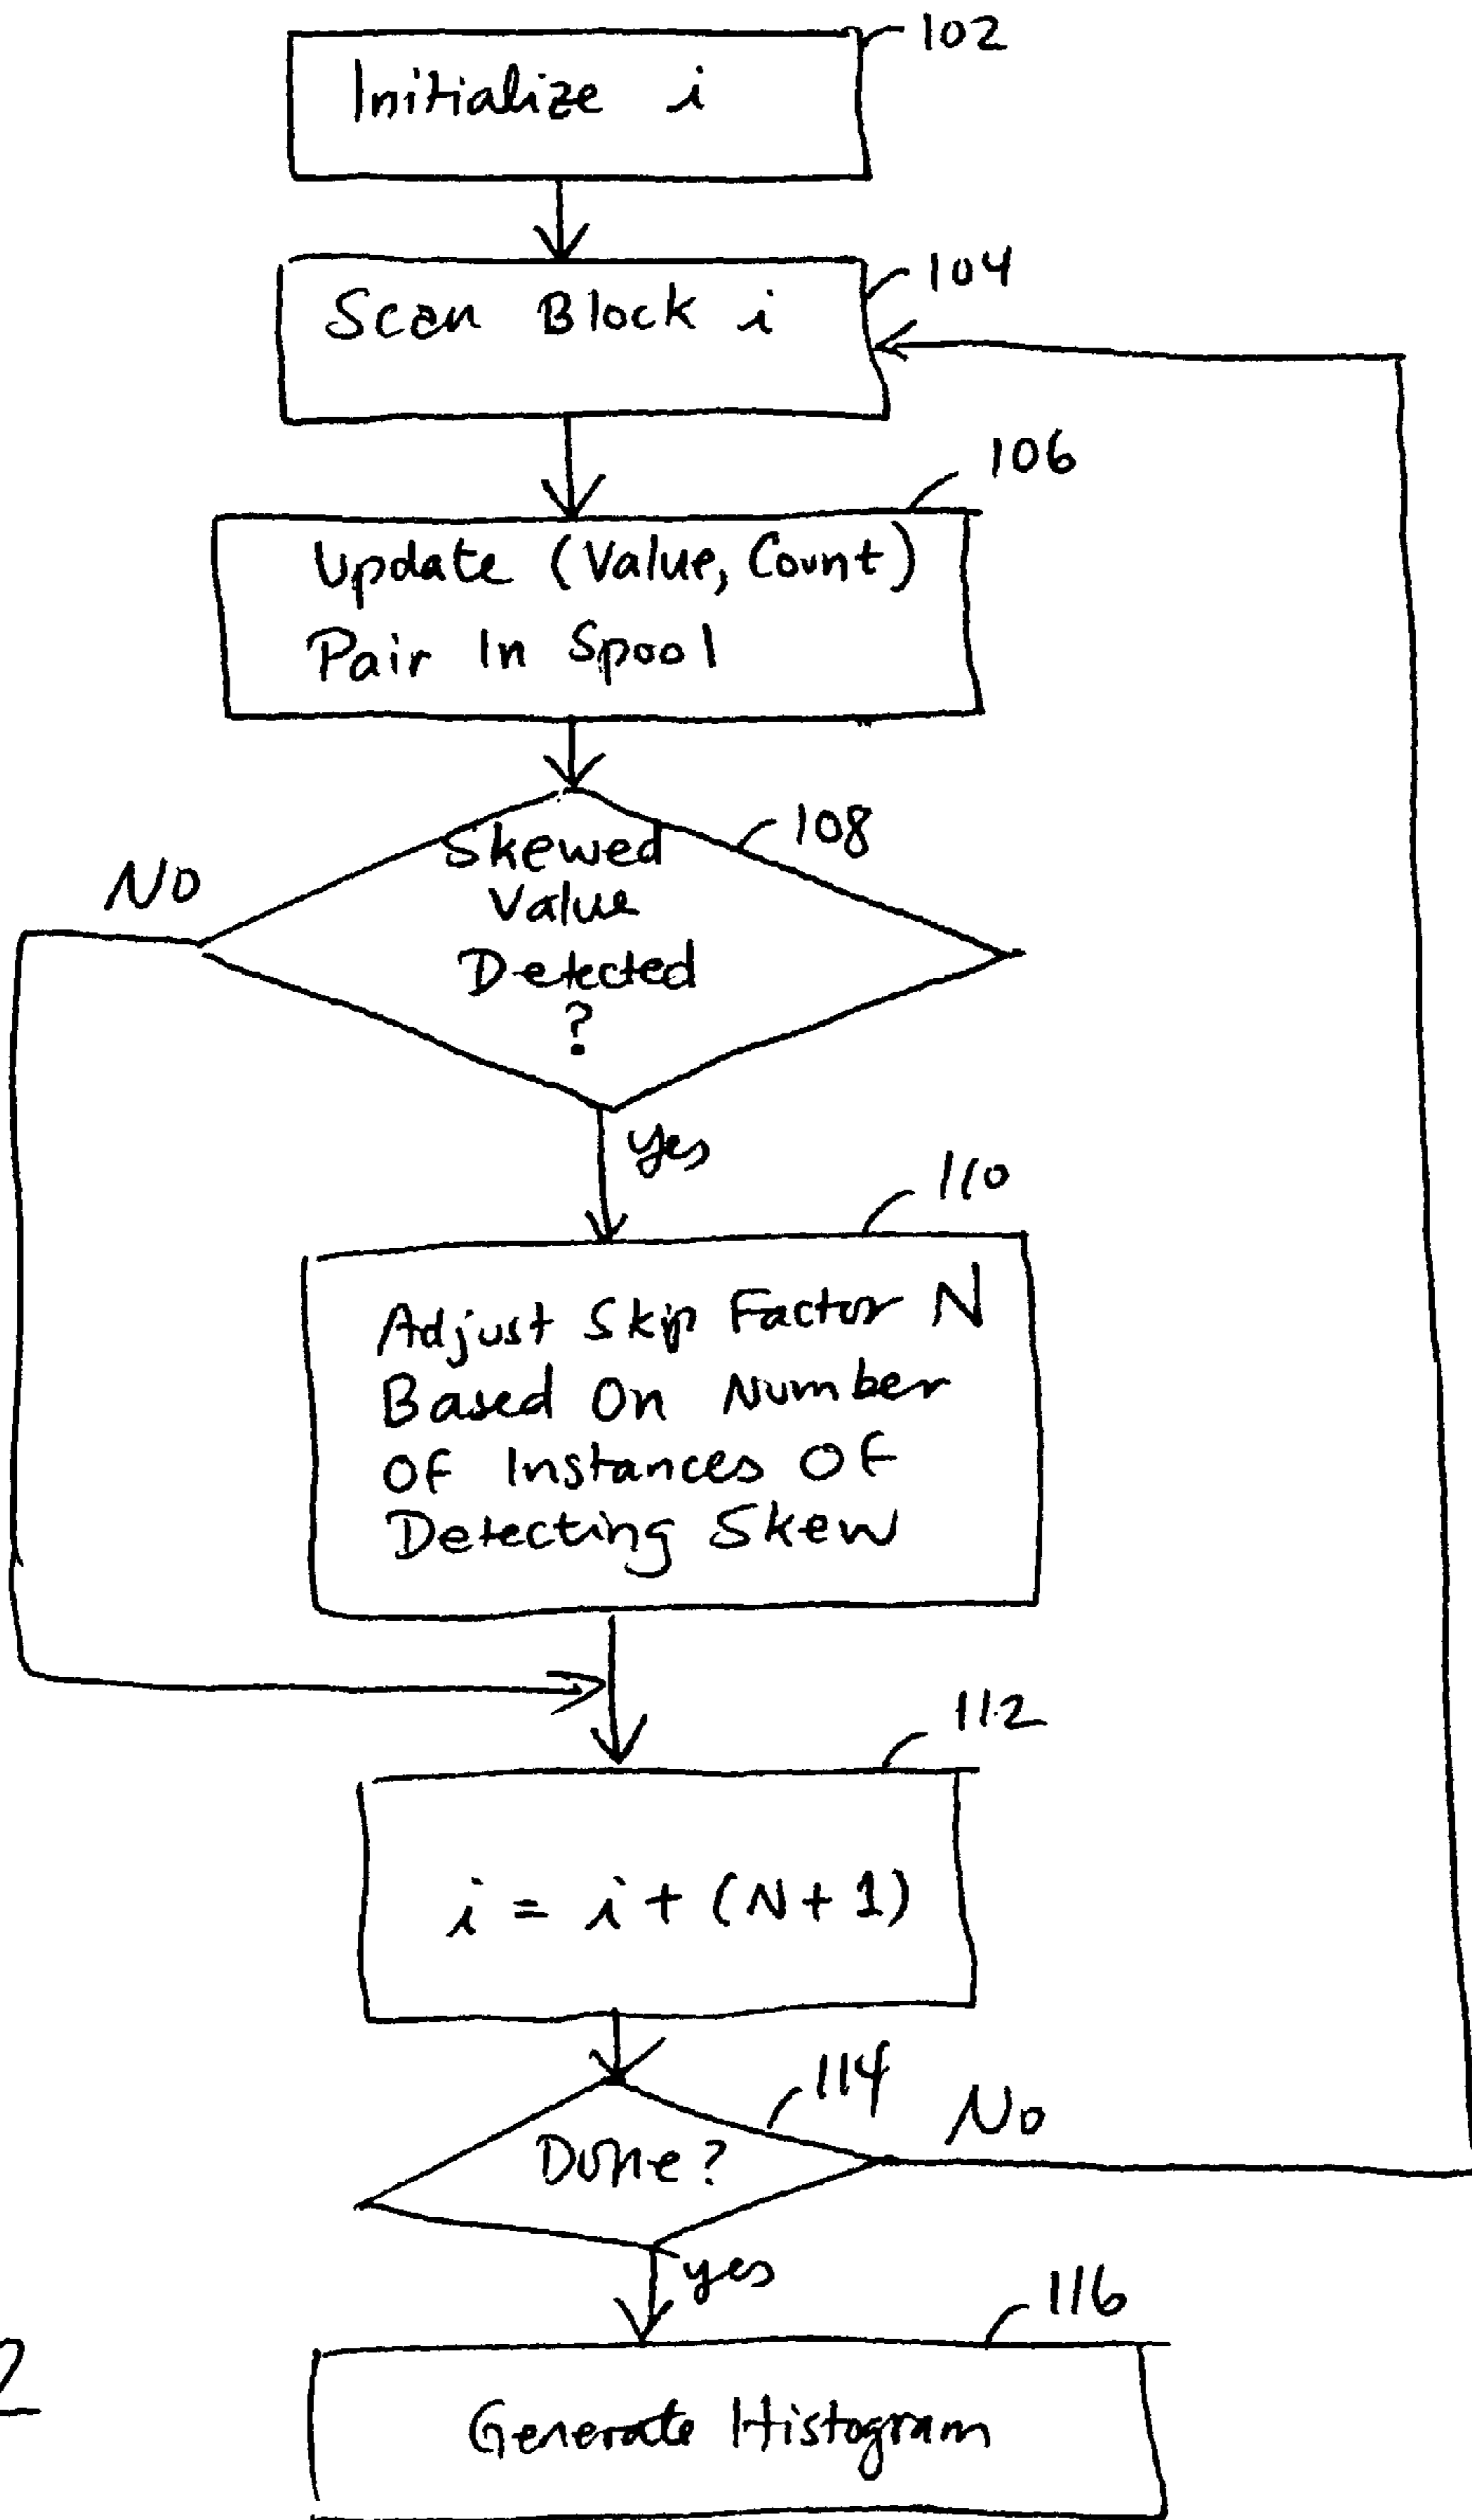 102
Initialize i
104
Scan Block i
106
Update (Value, Count)
Pair In Spool
108
No
Skewed
Value
Detected
?
yes
110
Adjust Skip Factor N
Based On Number
Of Instances Of
Detecting Skew
112
i = i + (N+1)
114
No
Done?
yes
116
2
Generate Histogram